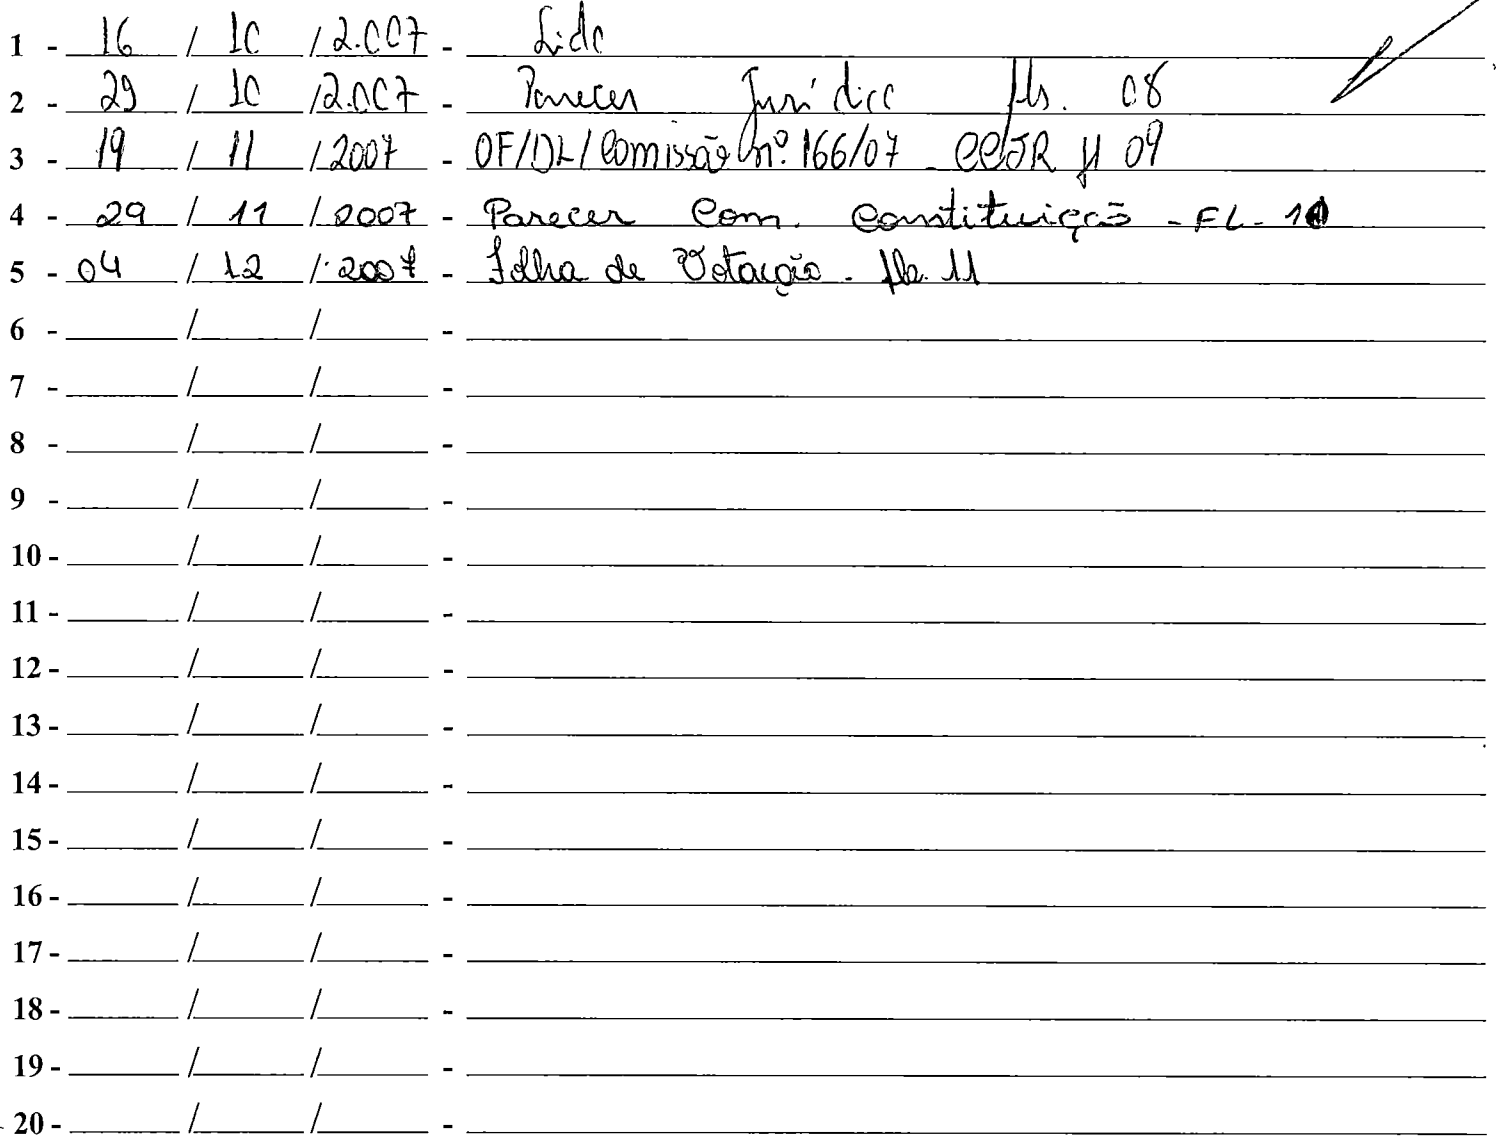 1 - 16 / 10 / 2.007 - Lido
2 - 29 / 10 / 2.007 - Parecer Jurídico fls. 08
3 - 19 / 11 / 2007 - OF/DL/Comissão nº 166/07 - CCJR fl 09
4 - 29 / 11 / 2007 - Parecer Com. Constituição - FL - 10
5 - 04 / 12 / 2007 - Folha de Votação - fls. 11
6 - / / -
7 - / / -
8 - / / -
9 - / / -
10 - / / -
11 - / / -
12 - / / -
13 - / / -
14 - / / -
15 - / / -
16 - / / -
17 - / / -
18 - / / -
19 - / / -
20 - / / -